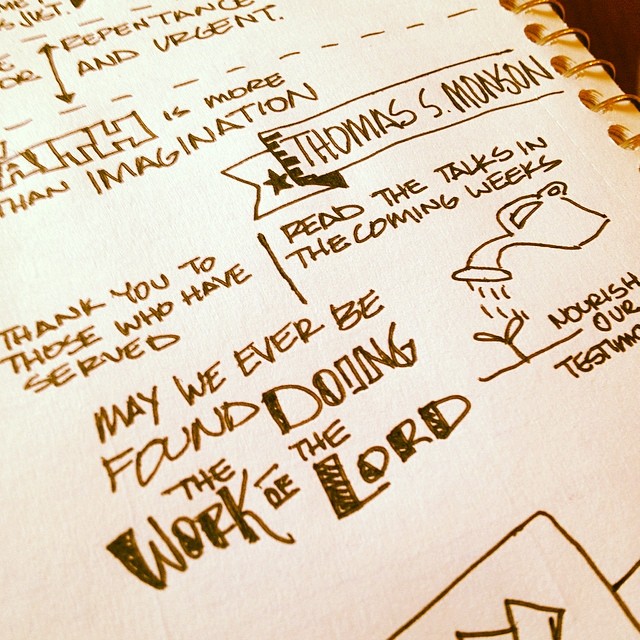 REPENTANCE
AND URGENT.
IS MORE
THAN IMAGINATION
THOMAS S. MONSON
READ THE TALKS IN
THE COMING WEEKS
THANK YOU TO
THOSE WHO HAVE
SERVED
NOURISH
OUR
MAY WE EVER BE
FOUND DOING
THE
WORK OF THE
LORD